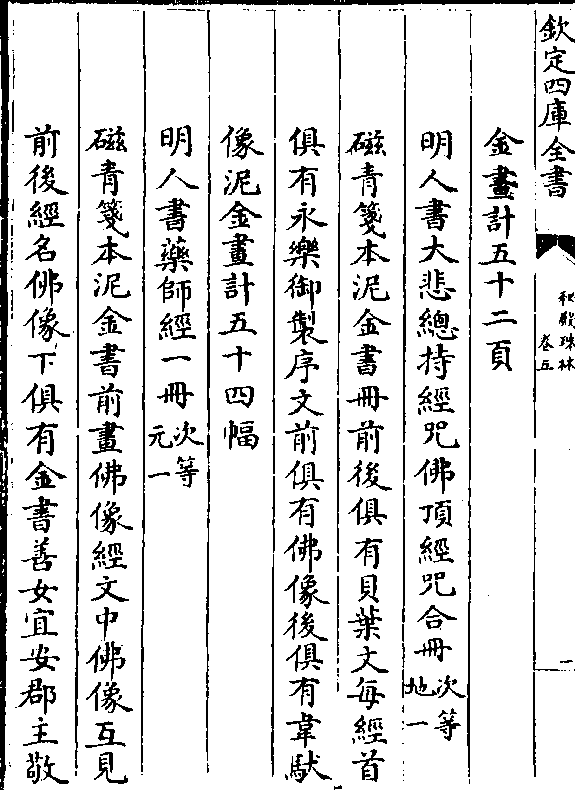 欽定四庫全書
秘殿珠林
卷五
一
金畫計五十二頁
明人書大悲總持經咒佛頂經咒合冊次等地一
磁青箋本泥金書冊前後俱有貝葉文每經首
俱有永樂御製序文前俱有佛像後俱有韋馱
像泥金畫計五十四幅
明人書藥師經一冊次等元一
磁青箋本泥金書前畫佛像經文中佛像互見
前後經名佛像下俱有金書善女宜安郡主敬